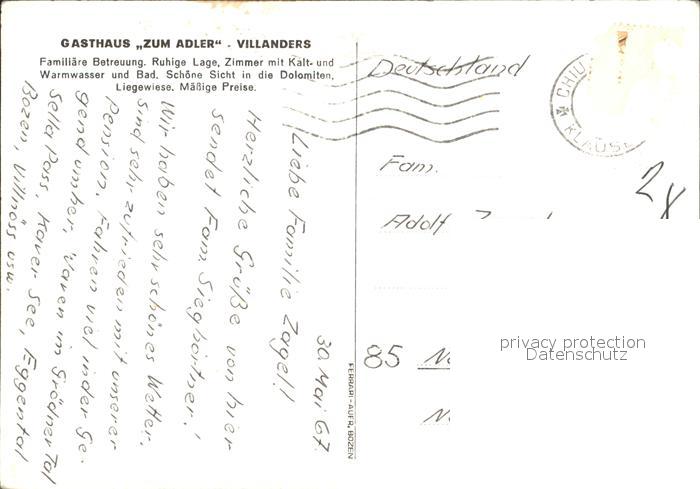 GASTHAUS „ZUM ADLER" - VILLANDERS
Familiäre Betreuung. Ruhige Lage, Zimmer mit Kalt- und
Warmwasser und Bad. Schöne Sicht in die Dolomiten,
Liegewiese. Mäßige Preise.
30 Mai 67.
Liebe Familie Zagel!
Herzliche Grüße von hier
sendet Fam. Sieghörtner!
Wir haben sehr schönes Wetter.
Sind sehr zufrieden mit unserer
Pension. Fahren viel in der Ge-
gend umher, waren im Grödner Tal
Sella Pass, Karer See, Eggental
Bozen, Villnöss usw.
FERRARI-AUER, BOZEN
Deutschland
CHIU
KLAUSE
Fam.
Adolf
85
2x
privacy protection
Datenschutz